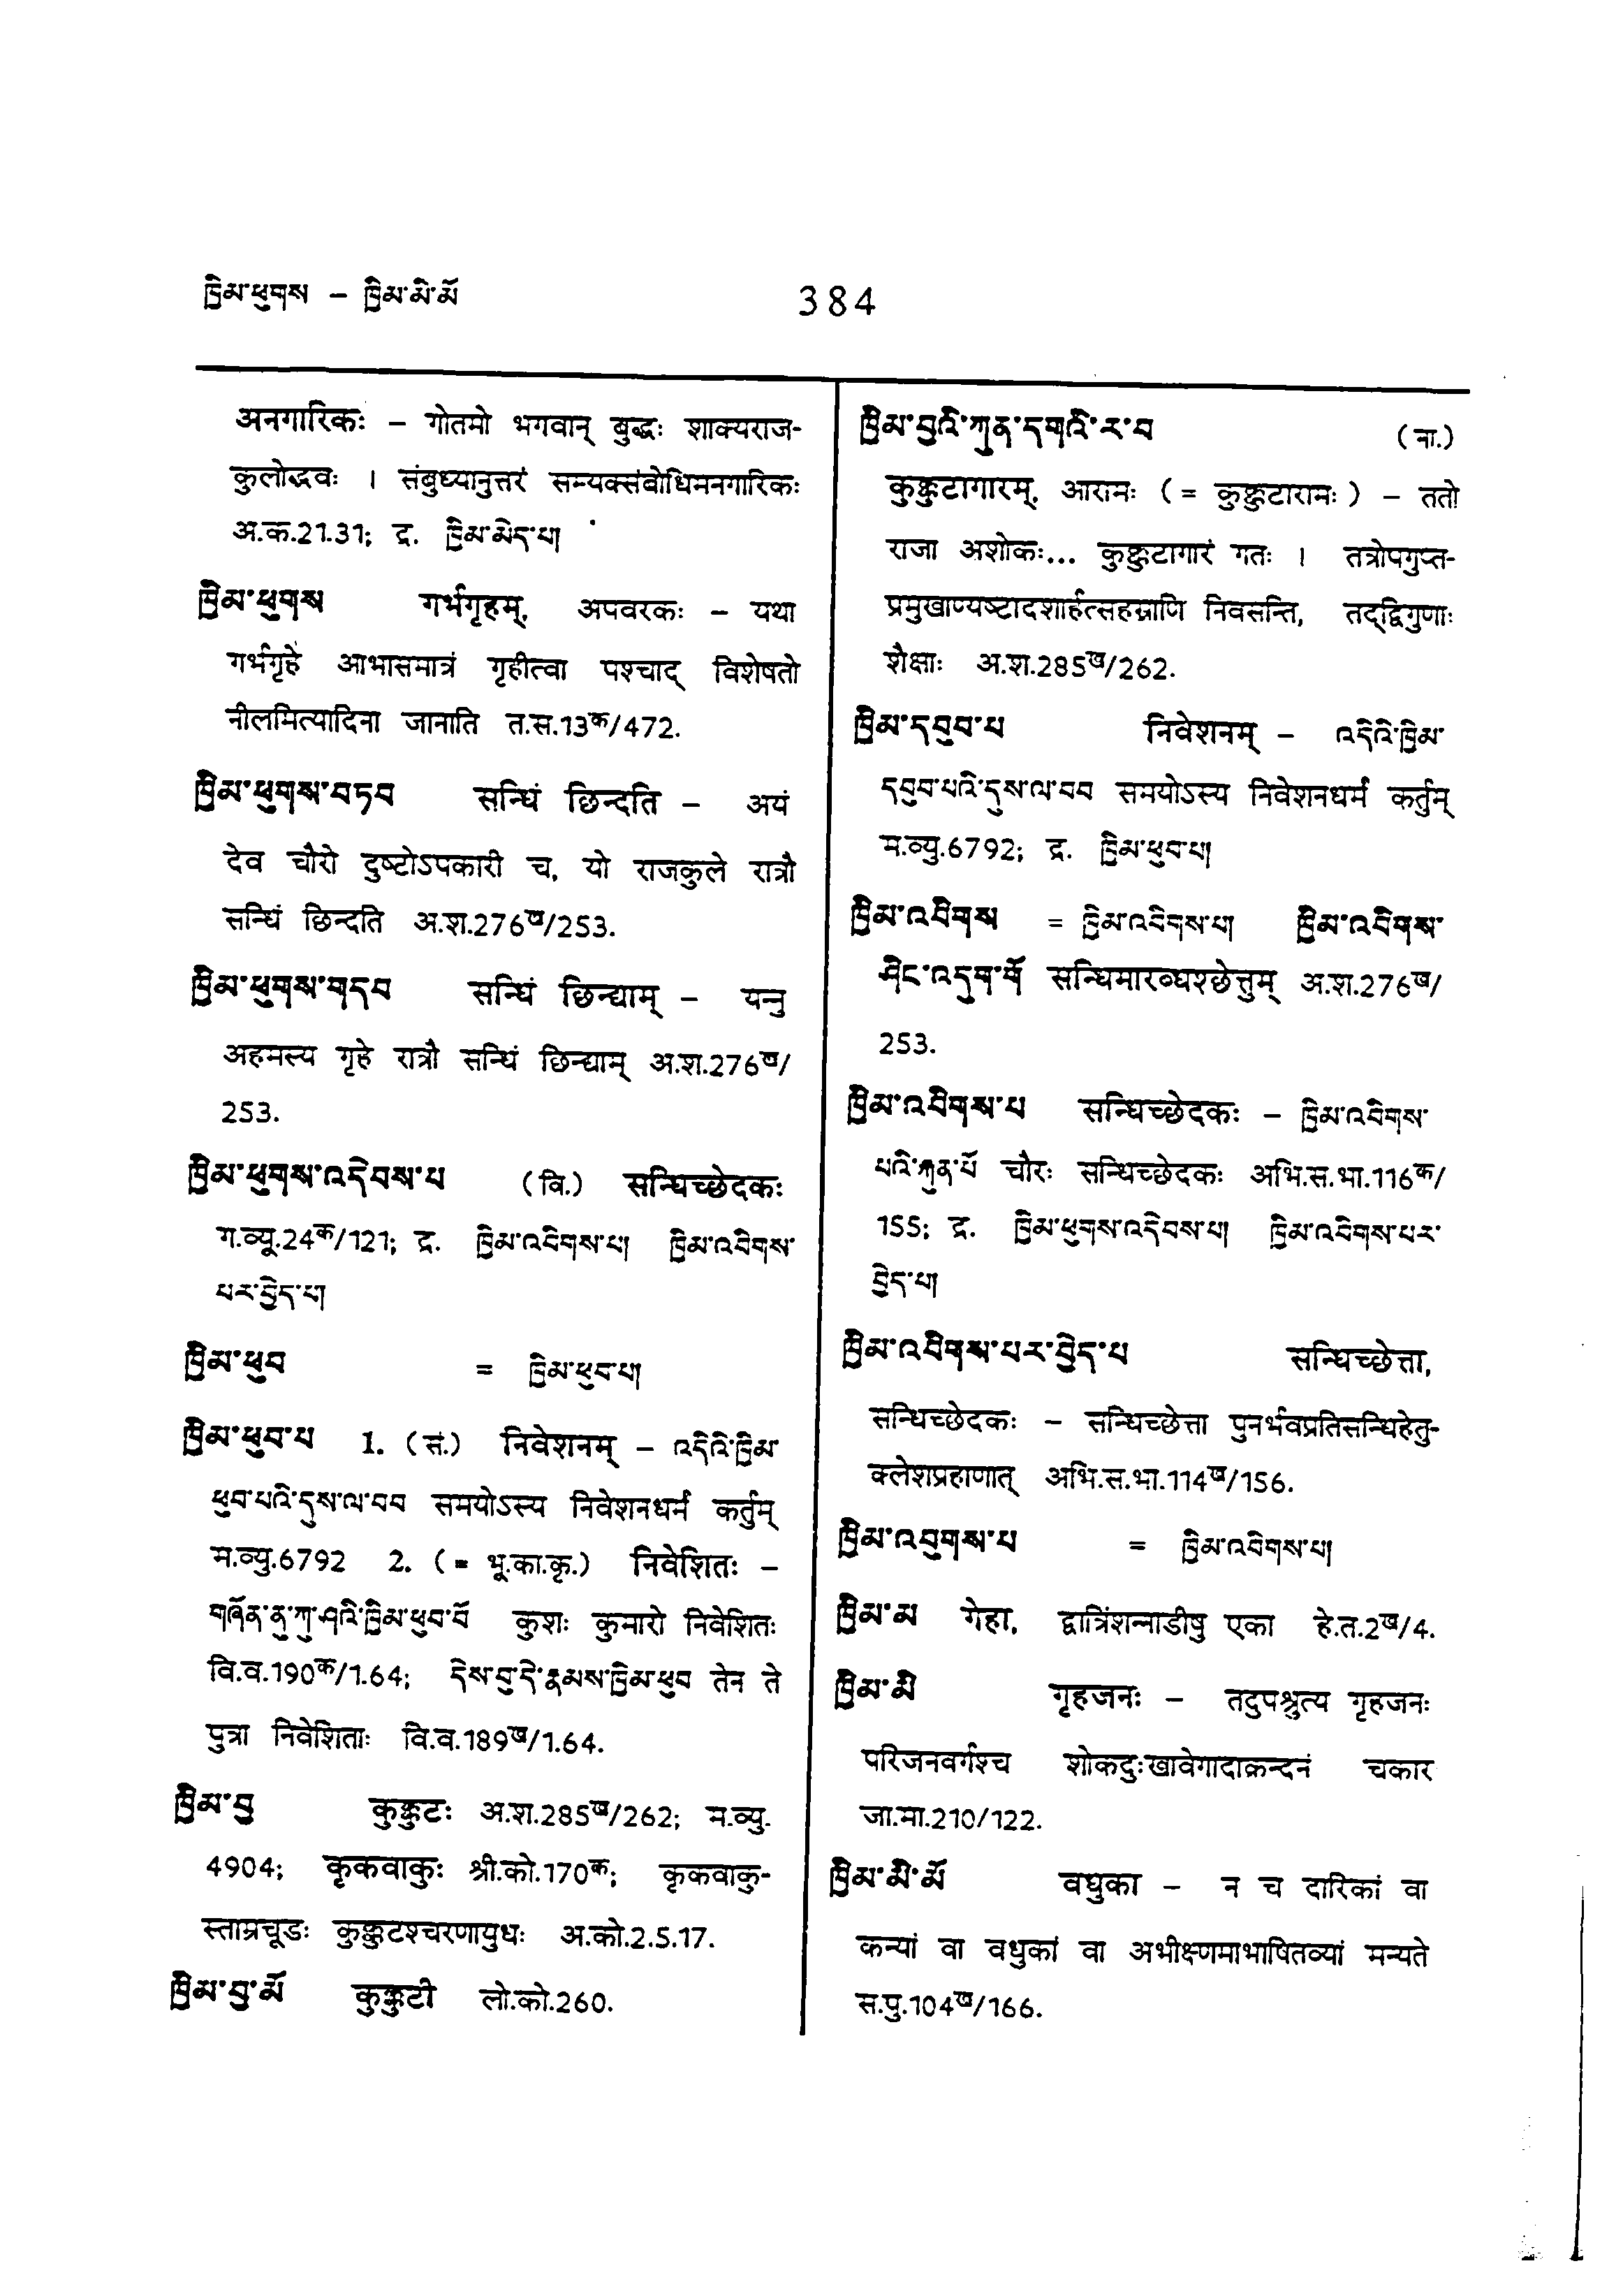 ཁྱིམ་ཕུགས – ཁྱིམ་མི་མོ
384
अनगारिकः – गोतमो भगवान् बुद्धः शाक्यराज-
कुलोद्भवः । संबुध्यानुत्तरं सम्यक्संबोधिमनगारिकः
अ.क.21.31; द्र. ཁྱིམ་མེད་པ།
ཁྱིམ་ཕུགས गर्भगृहम्, अपवरकः – यथा
गर्भगृहे आभासमात्रं गृहीत्वा पश्चाद् विशेषतो
नीलमित्यादिना जानाति त.स.13क/472.
ཁྱིམ་ཕུགས་བཏབ सन्धिं छिन्दति – अयं
देव चौरो दुष्टोऽपकारी च, यो राजकुले रात्रौ
सन्धिं छिन्दति अ.श.276ख/253.
ཁྱིམ་ཕུགས་གདབ सन्धिं छिन्द्याम् – यन्नु
अहमस्य गृहे रात्रौ सन्धिं छिन्द्याम् अ.श.276ख/
253.
ཁྱིམ་ཕུགས་འདེབས་པ (वि.) सन्धिच्छेदकः
ग.व्यू.24क/121; द्र. ཁྱིམ་འབིགས་པ། ཁྱིམ་འབིགས་
པར་བྱེད་པ།
ཁྱིམ་ཕུབ = ཁྱིམ་ཕུབ་པ།
ཁྱིམ་ཕུབ་པ 1. (सं.) निवेशनम् – འདིའི་ཁྱིམ་
ཕུབ་པའི་དུས་ལ་བབ समयोऽस्य निवेशनधर्मं कर्तुम्
म.व्यु.6792 2. (= भू.का.कृ.) निवेशितः –
གཞོན་ནུ་ཀུ་ཤའི་ཁྱིམ་ཕུབ་བོ कुशः कुमारो निवेशितः
वि.व.190क/1.64; དེས་བུ་དེ་རྣམས་ཁྱིམ་ཕུབ तेन ते
पुत्रा निवेशिताः वि.व.189ख/1.64.
ཁྱིམ་བྱ कुक्कुटः अ.श.285ख/262; म.व्यु.
4904; कृकवाकुः श्री.को.170क; कृकवाकु-
स्ताम्रचूडः कुक्कुटश्चरणायुधः अ.को.2.5.17.
ཁྱིམ་བྱ་མོ कुक्कुटी लो.को.260.
ཁྱིམ་བྱའི་ཀུན་དགའི་ར་བ (ना.)
कुक्कुटागारम्, आरामः (= कुक्कुटारामः) – ततो
राजा अशोकः... कुक्कुटागारं गतः । तत्रोपगुप्त-
प्रमुखाण्यष्टादशार्हत्सहस्राणि निवसन्ति, तद्द्विगुणाः
शैक्षाः अ.श.285ख/262.
ཁྱིམ་དབུབ་པ निवेशनम् – འདིའི་ཁྱིམ་
དབུབ་པའི་དུས་ལ་བབ समयोऽस्य निवेशनधर्मं कर्तुम्
म.व्यु.6792; द्र. ཁྱིམ་ཕུབ་པ།
ཁྱིམ་འབིགས = ཁྱིམ་འབིགས་པ། ཁྱིམ་འབིགས་
ཤིང་འདུག་གོ सन्धिमारब्धश्छेत्तुम् अ.श.276ख/
253.
ཁྱིམ་འབིགས་པ सन्धिच्छेदकः – ཁྱིམ་འབིགས་
པའི་རྐུན་པོ चौरः सन्धिच्छेदकः अभि.स.भा.116क/
155; द्र. ཁྱིམ་ཕུགས་འདེབས་པ། ཁྱིམ་འབིགས་པར་
བྱེད་པ།
ཁྱིམ་འབིགས་པར་བྱེད་པ सन्धिच्छेत्ता,
सन्धिच्छेदकः – सन्धिच्छेत्ता पुनर्भवप्रतिसन्धिहेतु-
क्लेशप्रहाणात् अभि.स.भा.114ख/156.
ཁྱིམ་འབུགས་པ = ཁྱིམ་འབིགས་པ།
ཁྱིམ་མ गेहा, द्वात्रिंशन्नाडीषु एका हे.त.2ख/4.
ཁྱིམ་མི गृहजनः – तदुपश्रुत्य गृहजनः
परिजनवर्गश्च शोकदुःखावेगादाक्रन्दनं चकार
जा.मा.210/122.
ཁྱིམ་མི་མོ वधुका – न च दारिकां वा
कन्यां वा वधुकां वा अभीक्ष्णमाभाषितव्यां मन्यते
स.पु.104ख/166.